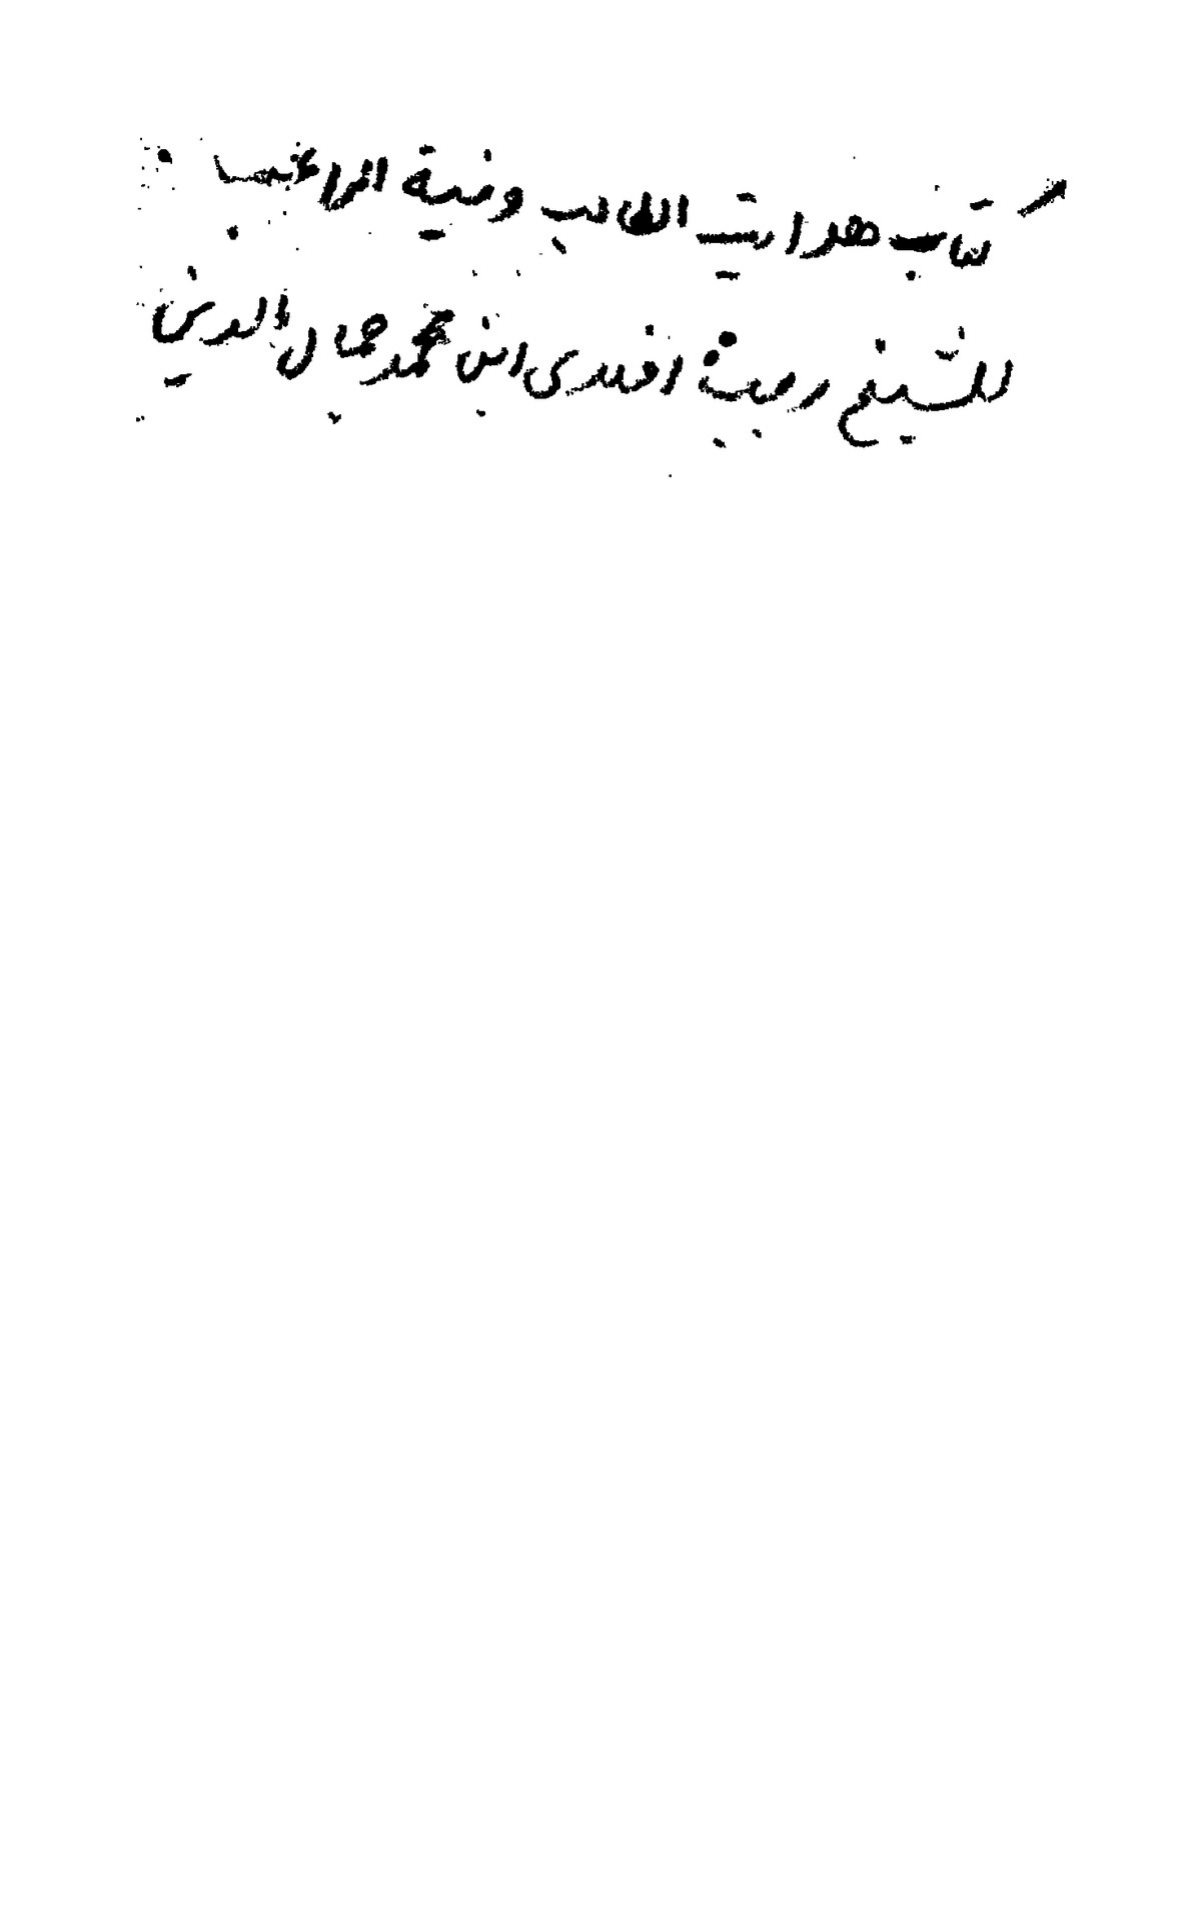 كتاب هدايت الطالب ومنية الراغب
للشيخ افندى ابن محمد جمال الدين